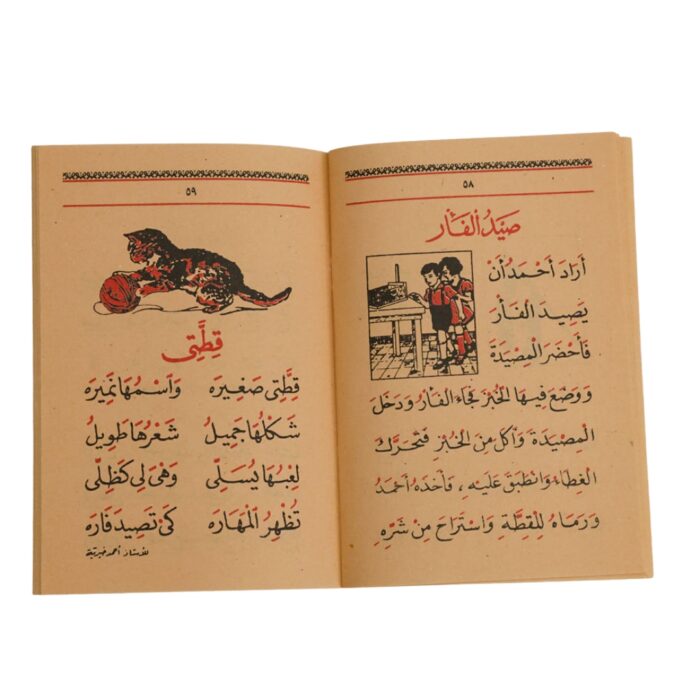 ٥٨
صَيْدُ الْفَأْر
أَرَادَ أَحْمَدُ أَنْ
يَصِيدَ الْفَأْرَ
فَأَحْضَرَ الْمِصْيَدَةَ
وَوَضَعَ فِيهَا الْخُبْزَ فَجَاءَ الْفَأْرُ وَدَخَلَ
الْمِصْيَدَةَ وَأَكَلَ مِنَ الْخُبْزِ فَتَحَرَّكَ
الْغِطَاءُ وَانْطَبَقَ عَلَيْهِ، فَأَخَذَهُ أَحْمَدُ
وَرَمَاهُ لِلْقِطَّةِ وَاسْتَرَاحَ مِنْ شَرِّهِ
٥٩
قِطَّتِى
قِطَّتِى صَغِيرَه وَاسْمُهَا نَمِيرَه
شَكْلُهَا جَمِيلُ شَعْرُهَا طَوِيلُ
لِعْبُهَا يُسَلِّى وَهْىَ لِى كَظِلِّى
تُظْهِرُ الْمَهَارَه كَىْ تَصِيدَ فَارَه
للأستاذ أحمد خيرت